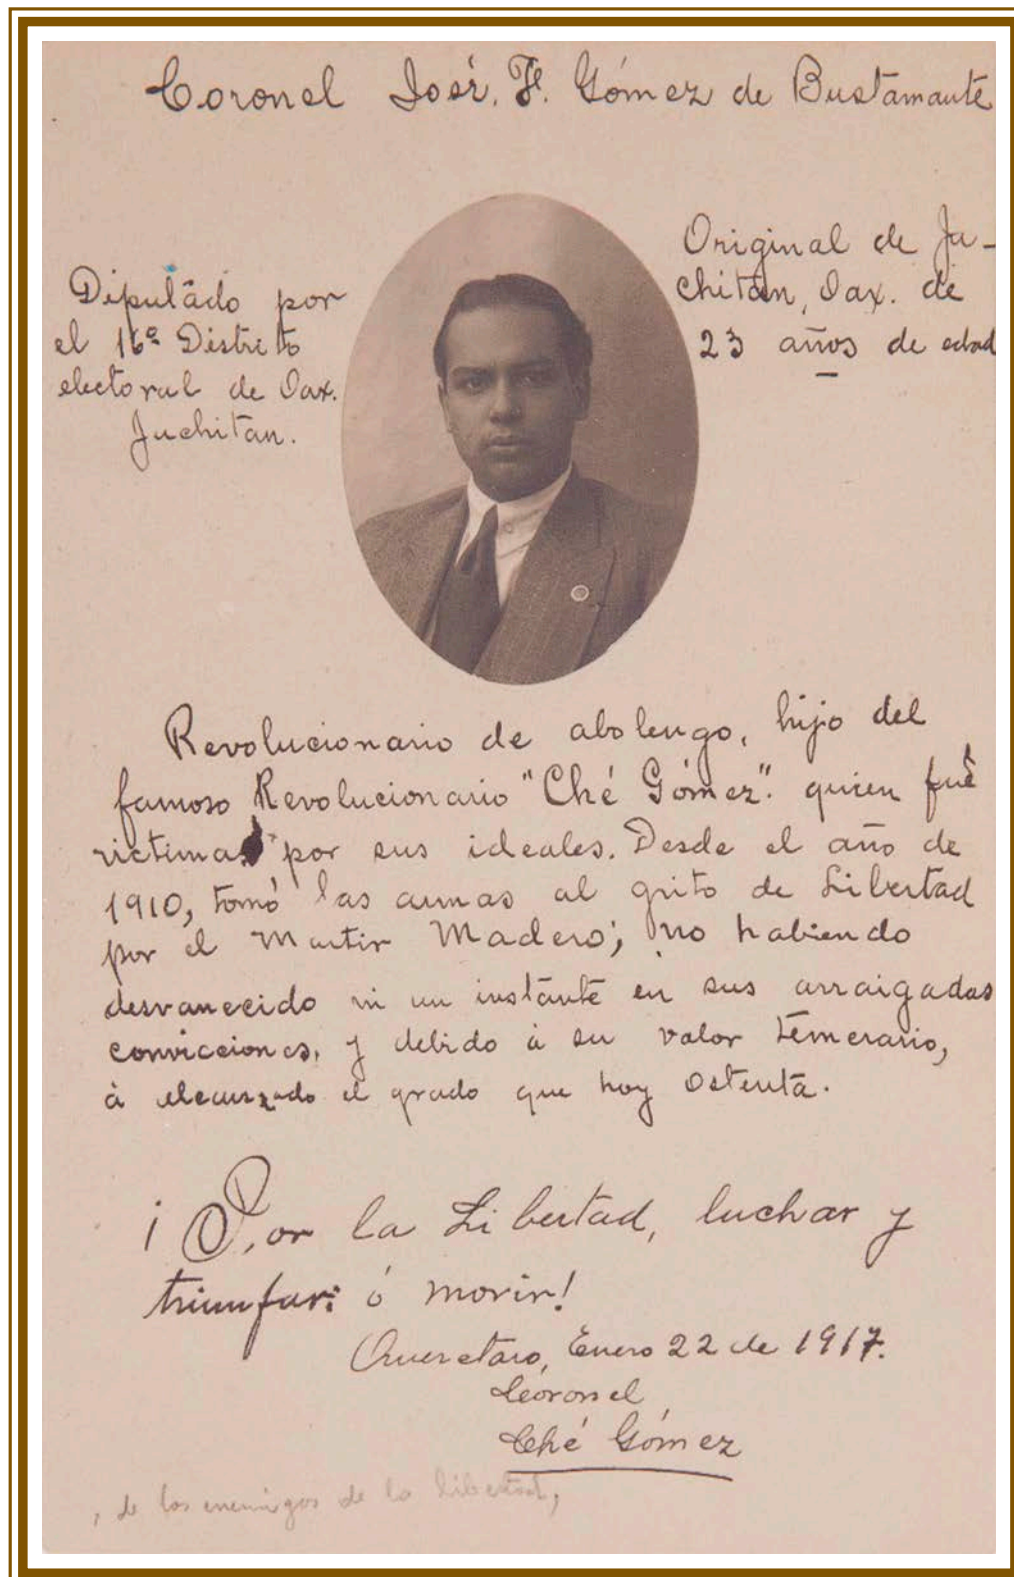 Coronel José. F. Gómez de Bustamante
Diputádo por
el 16º Distrito
electoral de Oax.
Juchitan.
Original de Ju-
chitán, Oax. de
23 años de edad
Revolucionario de abolengo, hijo del
famoso Revolucionario "Ché Gómez". quien fué
victima por sus ideales. Desde el año de
1910, tomó las armas al grito de Libertad
por el Martir Madero; no habiendo
desvanecido ni un instante en sus arraigadas
convicciones, y debido á su valor temerario,
á alcanzado el grado que hoy ostenta.
¡Por la Libertad, luchar y
triunfar: ó morir!
Queretaro, Enero 22 de 1917.
Coronel
Ché Gómez
, de los enemigos de la libertad,